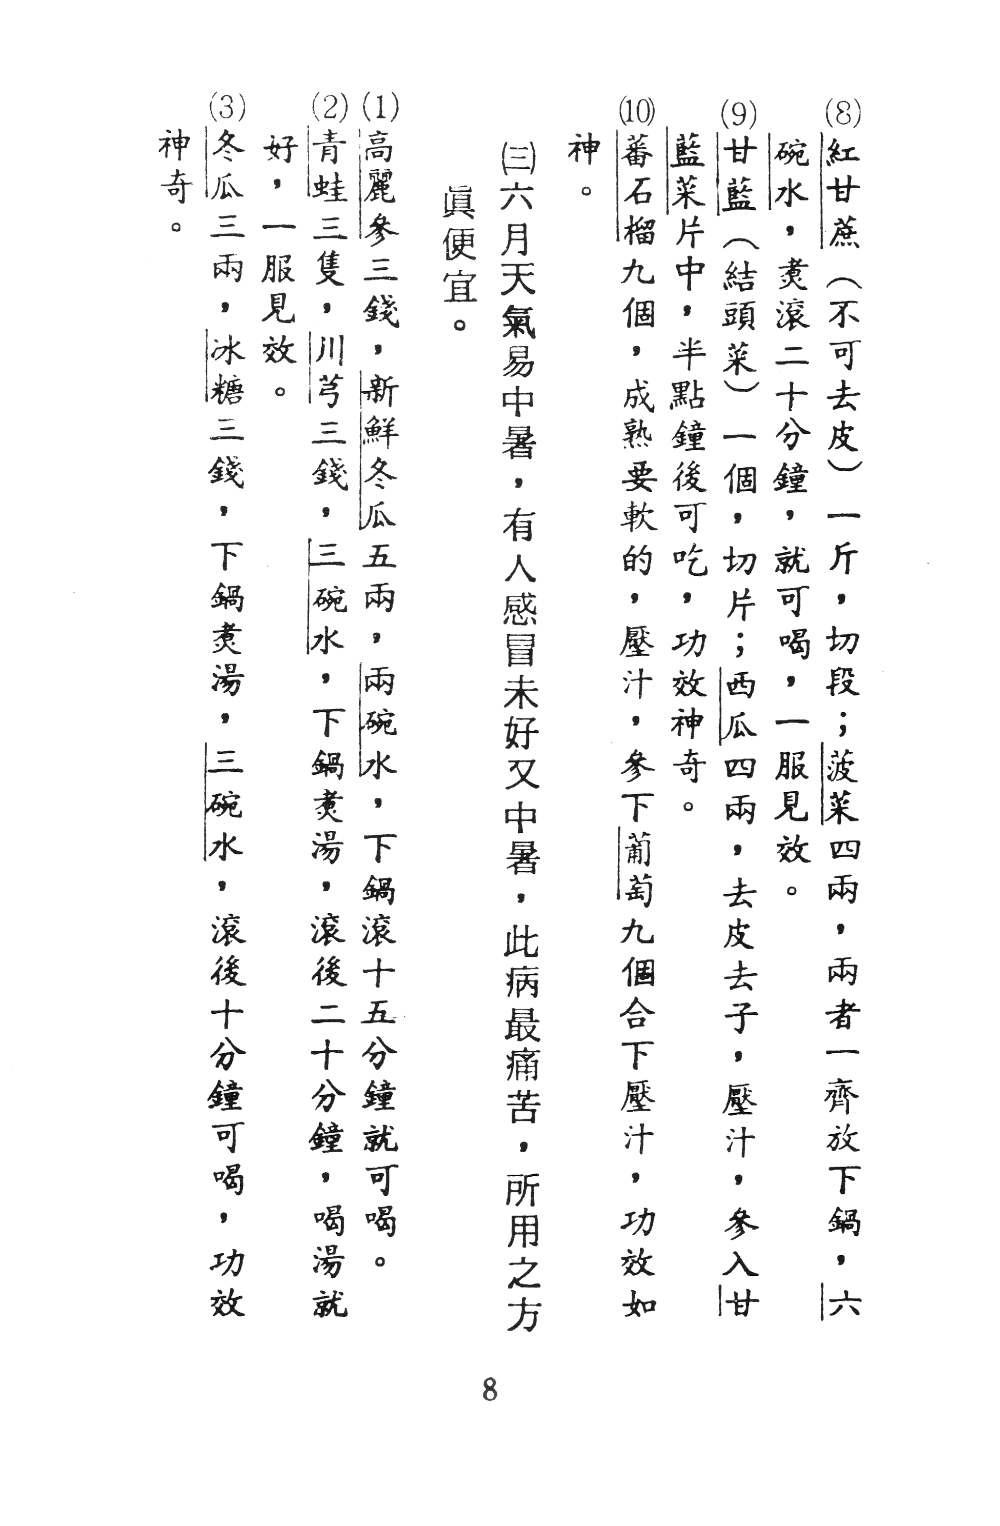 (8)紅甘蔗(不可去皮)一斤，切段；菠菜四兩，兩者一齊放下鍋，六
碗水，煑滾二十分鐘，就可喝，一服見效。
(9)甘藍(結頭菜)一個，切片；西瓜四兩，去皮去子，壓汁，參入甘
藍菜片中，半點鐘後可吃，功效神奇。
(10)蕃石榴九個，成熟要軟的，壓汁，參下葡萄九個合下壓汁，功效如
神。
㈢六月天氣易中暑，有人感冒未好又中暑，此病最痛苦，所用之方
眞便宜。
(1)高麗參三錢，新鮮冬瓜五兩，兩碗水，下鍋滾十五分鐘就可喝。
(2)青蛙三隻，川芎三錢，三碗水，下鍋煑湯，滾後二十分鐘，喝湯就
好，一服見效。
(3)冬瓜三兩，冰糖三錢，下鍋煑湯，三碗水，滾後十分鐘可喝，功效
神奇。
8